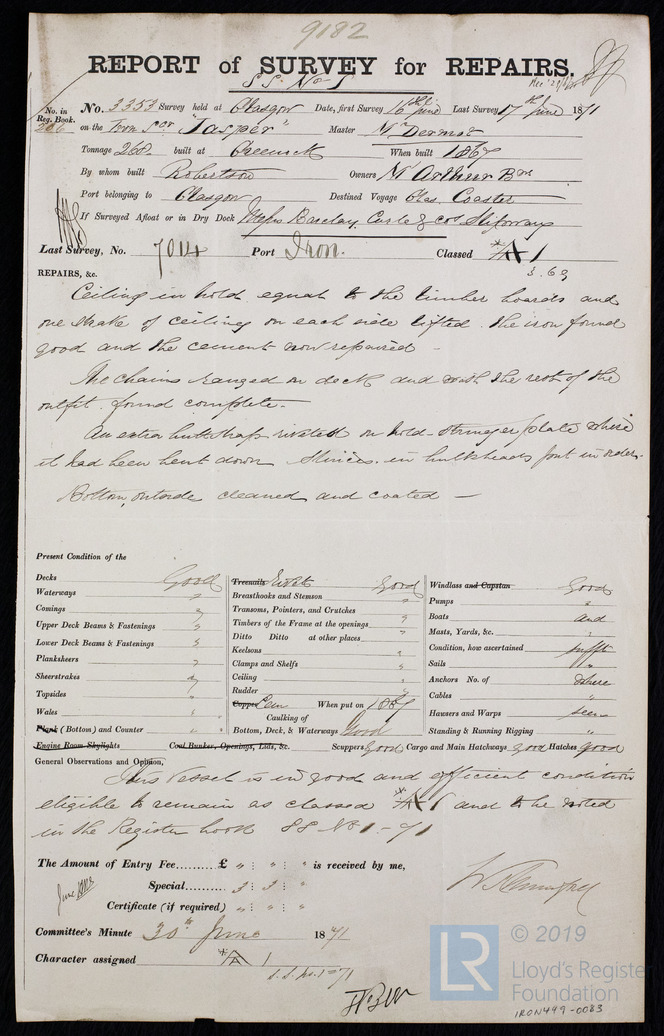 9182
REPORT of SURVEY for REPAIRS.
S.S. No 1
No. in Reg. Book. 206
No. 3353 Survey held at Glasgow Date, first Survey 16th June Last Survey 17th June 1871
on the Iron Scr "Jasper" Master McDermot
Tonnage 268 built at Greenock When built 1867
By whom built Robertson Owners McArthur Bros
Port belonging to Glasgow Destined Voyage Coaster
If Surveyed Afloat or in Dry Dock Messrs Barclay, Curle & Cos Slipway
Last Survey, No. 7014 Port Iron. Classed A 1
3.69
REPAIRS, &c.
Ceiling in hold equal to the limber boards and
one strake of ceiling on each side lifted. The iron found
good and the cement now repaired
The chains ranged on deck and with the rest of the
outfit found complete.
An extra butt strap riveted on hold stringer plate where
it had been bent down Sluices in bulkheads put in order.
Bottom outside cleaned and coated
Present Condition of the
Decks Good
Waterways "
Comings "
Upper Deck Beams & Fastenings "
Lower Deck Beams & Fastenings "
Planksheers "
Sheerstrakes "
Topsides "
Wales "
Plank (Bottom) and Counter "
Engine Room Skylights Coal Bunker, Openings, Lids, &c. Scuppers Good Cargo and Main Hatchways Good Hatches Good
Treenails Rivets Good
Breasthooks and Stemson "
Transoms, Pointers, and Crutches "
Timbers of the Frame at the openings "
Ditto Ditto at other places "
Keelsons "
Clamps and Shelfs "
Ceiling "
Rudder "
Copper Cem When put on 1867
Caulking of
Bottom, Deck, & Waterways Good
Windlass and Capstan Good
Pumps "
Boats and
Masts, Yards, &c. "
Condition, how ascertained sufft
Sails "
Anchors No. of where
Cables "
Hawsers and Warps seen
Standing & Running Rigging "
General Observations and Opinion,
This vessel is in good and efficient condition
eligible to remain as classed A 1 and to be noted
in the Register book SS No 1-71
The Amount of Entry Fee......... £ " : " : " is received by me,
Special......... 3 : 3 : "
Certificate (if required) " : " : "
Committee's Minute 30th June 1871
Character assigned A 1
S.S. No. 1-71
LR
© 2019
Lloyd's Register
Foundation
IRON499-0083